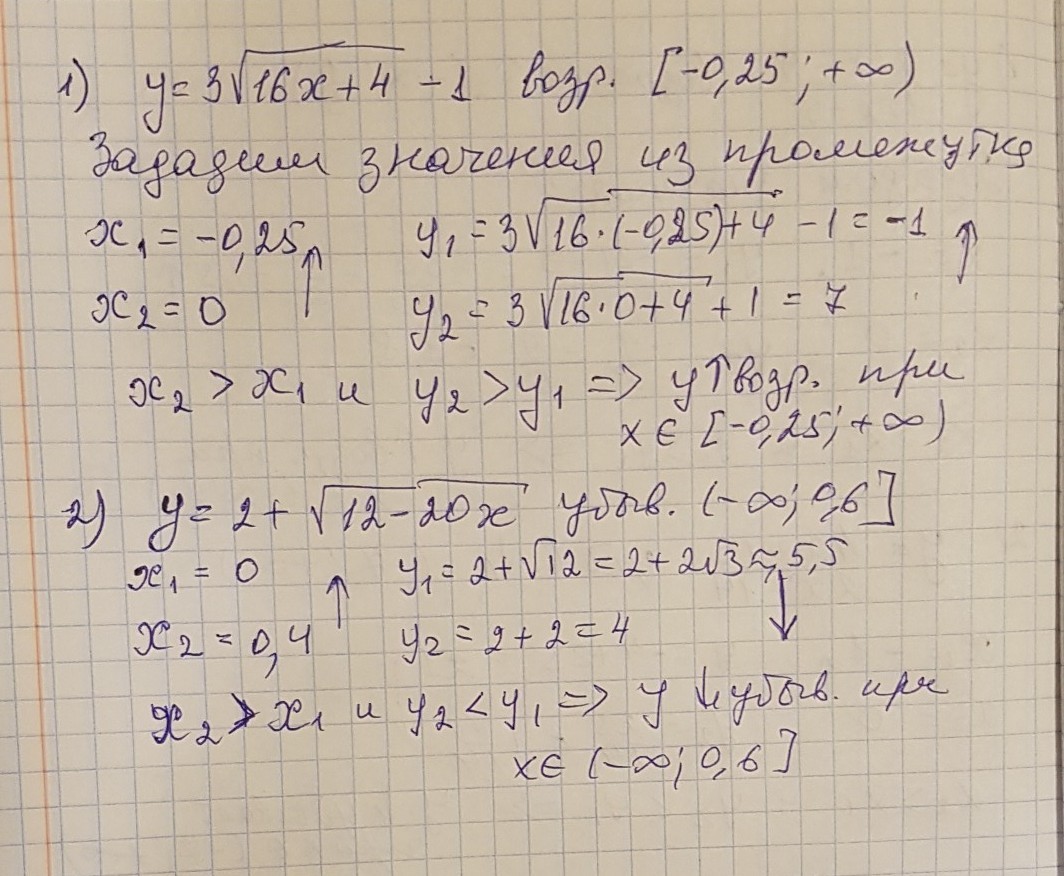 1) y = 3√16x+4 - 1 возр. [-0,25; +∞)
Зададим значения из промежутка
x₁ = -0,25 ↑ y₁ = 3√16·(-0,25)+4 - 1 = -1 ↑
x₂ = 0 y₂ = 3√16·0+4 + 1 = 7
x₂ > x₁ и y₂ > y₁ => y↑ возр. при
x ∈ [-0,25; +∞)
2) y = 2 + √12-20x убыв. (-∞; 0,6]
x₁ = 0 ↑ y₁ = 2+√12 = 2+2√3 ≈ 5,5 ↓
x₂ = 0,4 y₂ = 2+2 = 4
x₂ > x₁ и y₂ < y₁ => y ↓ убыв. при
x ∈ (-∞; 0,6]